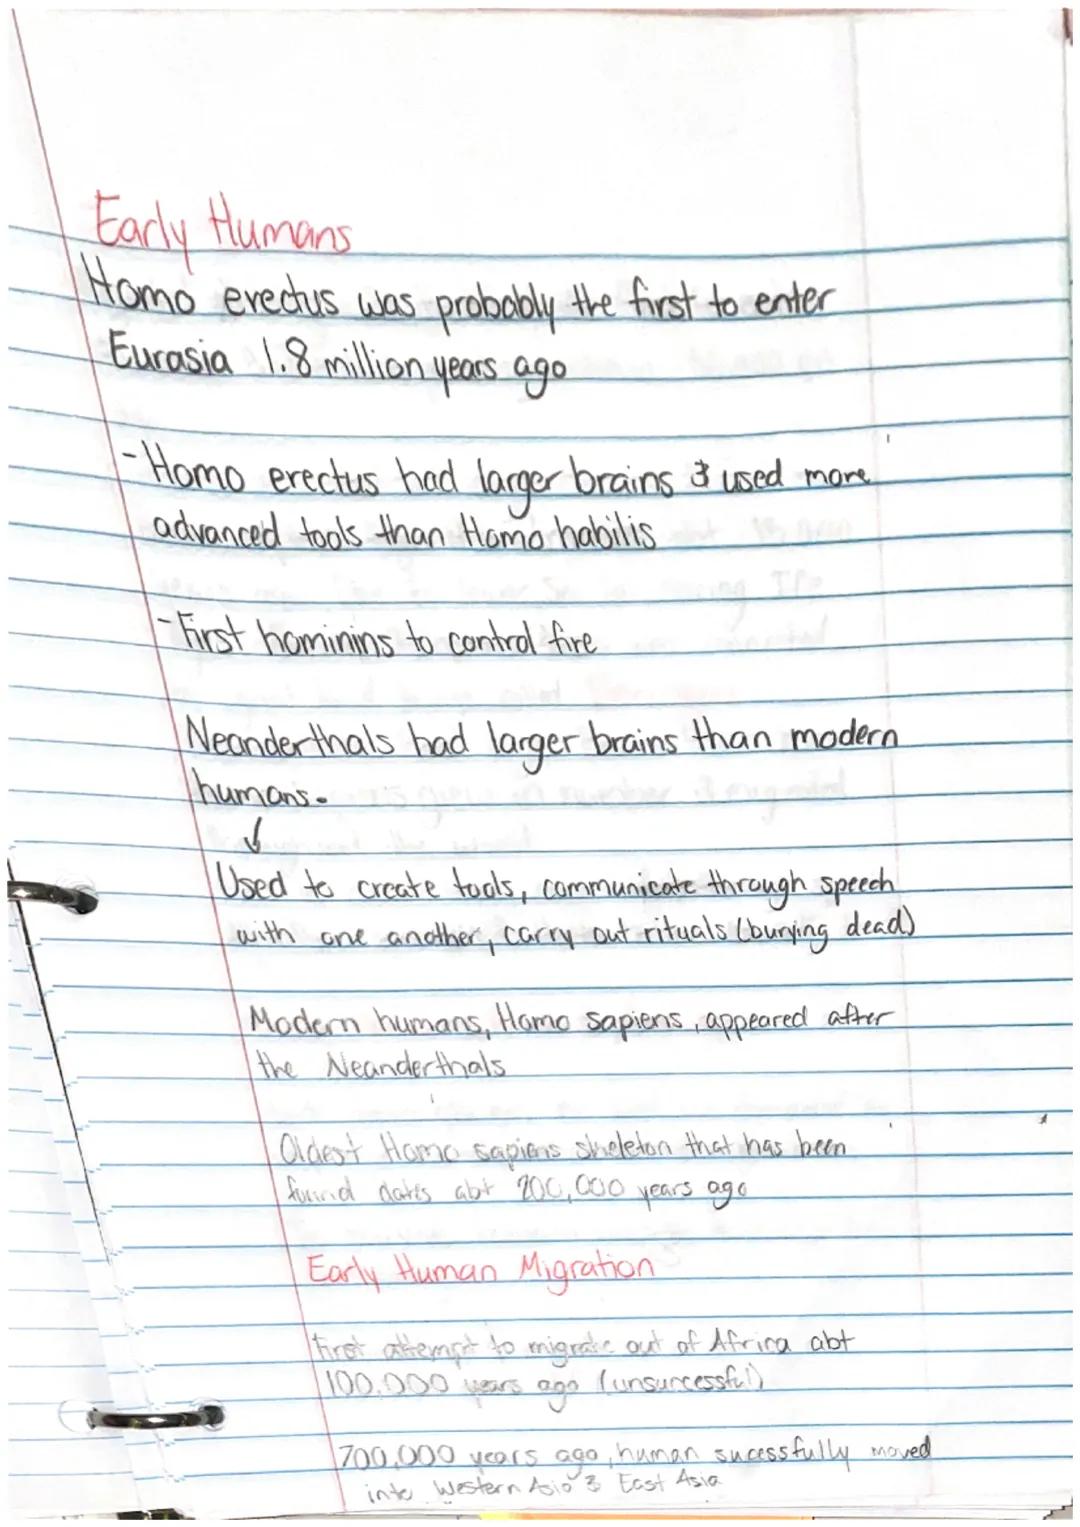 Early Humans
Homo erectus was probably the first to enter
Eurasia 1.8 million years ago
- Homo erectus had larger brains & used more
advanced tools than Homo habilis
- First hominins to control fire
Neanderthals had larger brains than modern
humans.
↓
Used to create tools, communicate through speech
with one another, carry out rituals (burying dead)
Modern humans, Homo sapiens, appeared after
the Neanderthals
Oldest Homo sapiens skeleton that has been
found dates abt 200,000 years ago
Early Human Migration
First attempt to migrate out of Africa abt
100,000 years ago (unsuccessful)
700,000 years ago, human sucessfully moved
into Western Asia & East Asia